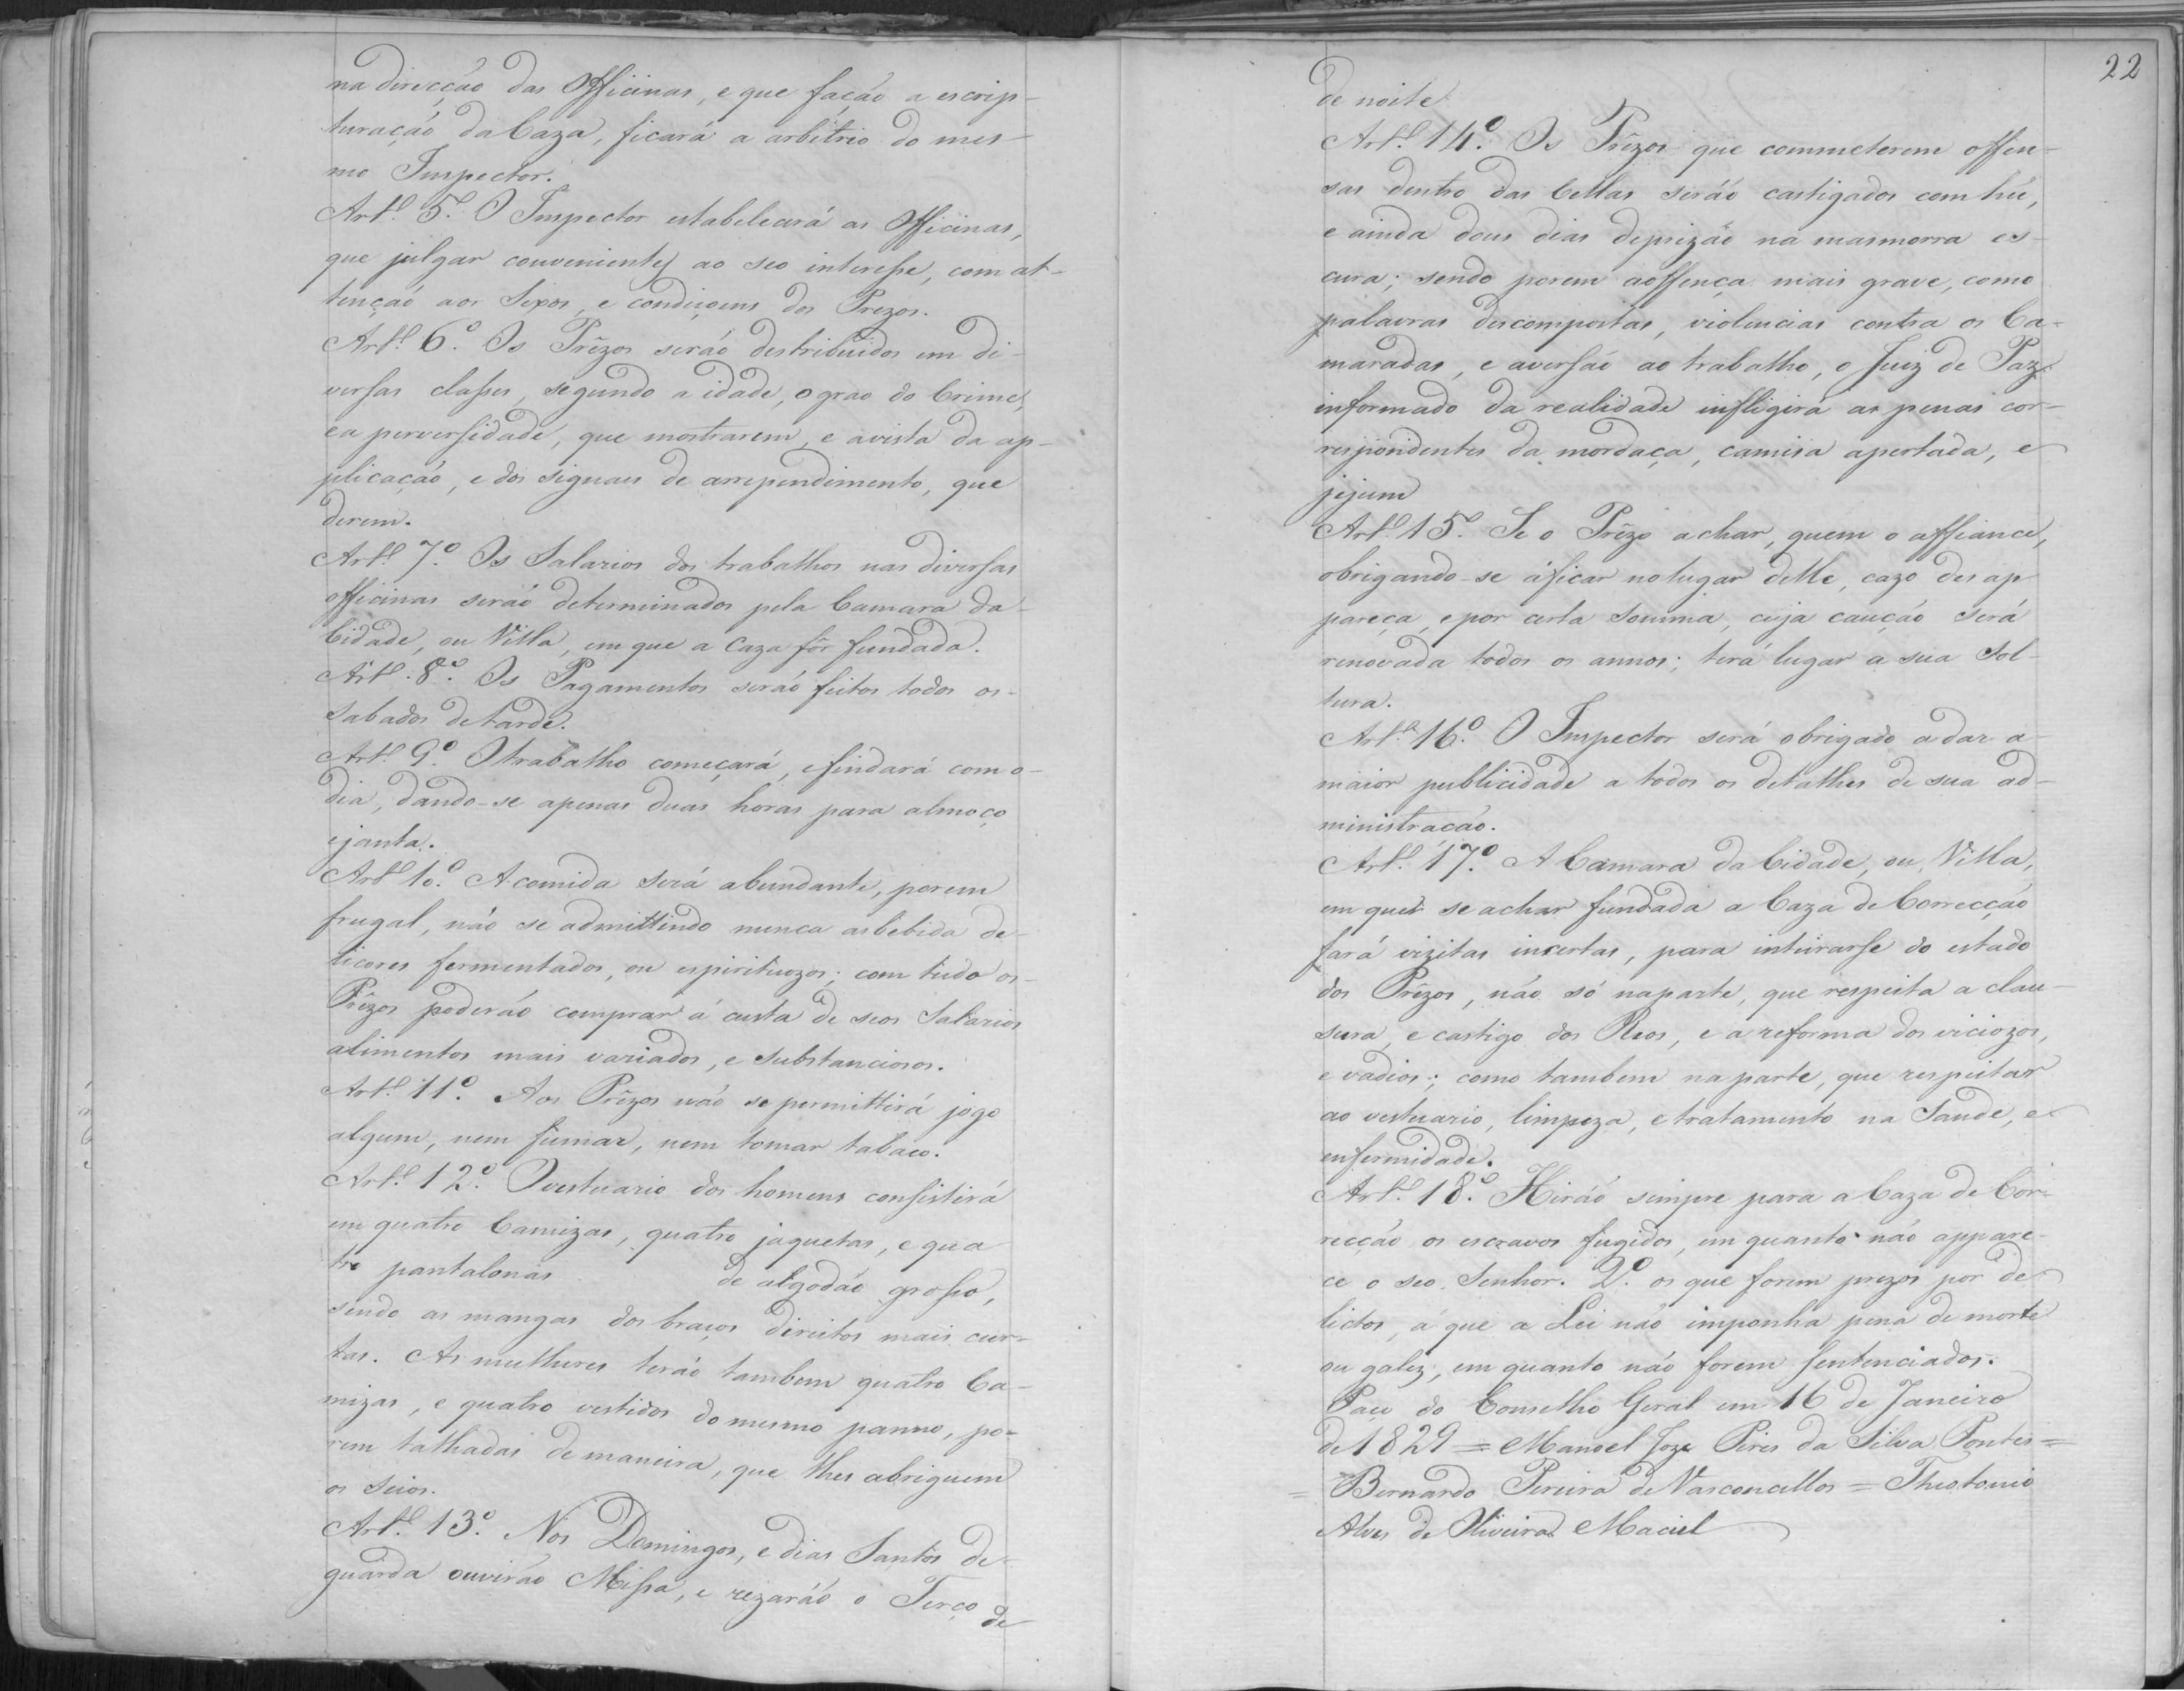 na direcção das Officinas, e que fação a escrip-
turação da Caza, ficará a arbitrio do mes-
mo Inspector.
Artº. 5º. O Inspector estabelecerá as Officinas,
que julgar convenientes ao seo interesse, com at-
tenção aos Sexos, e condiçoens dos Prezos.
Artº. 6º. Os Prêzos serão destribuidos em di-
versas classes, segundo a idade, o grao do Crime,
e a perversidade, que mostrarem, e avista da ap-
plicação, e dos signaes de arrependimento, que
derem.
Artº. 7º. Os Salarios dos trabalhos nas diversas
officinas serão determinados pela Camara da-
Cidade, ou Villa, em que a Caza fôr fundada.
Artº. 8º. Os Pagamentos serão feitos todos os-
Sabados de tarde.
Artº. 9º. O trabalho começará, e findará com o-
dia, dando-se apenas duas horas para almoço
e janta.
Artº 10º. A comida será abundante, porem
frugal, não se admittindo nunca as bebida de-
licores fermentados, ou espirituozos; com tudo os-
Prêzos poderão comprar á custa de seos Salarios
alimentos mais variados, e substanciosos.
Artº. 11º. Aos Prêzos não se permittirá jogo
algum, nem fumar, nem tomar tabaco.
Artº. 12º. O vestuario dos homens consistirá
em quatro Camizas, quatro jaquetas, e qua
tro pantalonas de algodão grosso,
sendo as mangas dos braços direitos mais cur-
tas. As mulheres terão tambem quatro Ca-
mizas, e quatro vestidos do mesmo panno, po-
rem talhadas de maneira, que lhes abriguem
os seios.
Artº. 13º. Nos Domingos, e dias Santos de
guarda ouvirão Missa, e rezarão o Terço
de
22
de noite
Artº. 14º. Os Prêzos que commeterem offen-
sas dentro das Cellas serão castigados com hú,
e ainda dous dias deprizão na masmorra es-
cura; sendo porem aoffença mais grave, como
palavras descompostas, violencias contra os Ca-
maradas, e aversão ao trabalho, o Juiz de Paz
informado da realidade infligirá as penas cor-
respondentes da mordaça, camisa apertada, e
jejum
Artº. 15º. Se o Prêzo achar, quem o affiance,
obrigando-se áficar no lugar delle, cazo desap
pareça, e por certa Somma, cuja caução será
renovada todos os annos; terá lugar a sua Sol-
tura.
Artº. 16º. O Inspector será obrigado a dar a-
maior publicidade a todos os detalhes de sua ad-
ministração.
Artº. 17º. A Camara da Cidade, ou Villa,
em que se achar fundada a Caza de Correcção
fará vizitas incertas, para inteirarse do estado
dos Prêzos, não só naparte, que respeita a clau-
sura, e castigo dos Reos, e a reforma dos viciozos,
e vadios; como tambem na parte, que respeitar
ao vestuario, limpeza, e tratamento na Saude, e
enfermidade.
Artº. 18º. Hirão sempre para a Caza de Cor-
recção os escravos fugidos, em quanto não appare-
ce o seo Senhor. 2º. os que forem prezos por de
lictos, a que a Lei não imponha pena de morte
ou galez, em quanto não forem Sentenciados.
Paço do Conselho Geral em 16 de Janeiro
de 1829 = Manoel Joze Pires da Silva Pontes =
= Bernardo Pereira de Vasconcellos = Theotonio
Alves de Oliveira Maciel